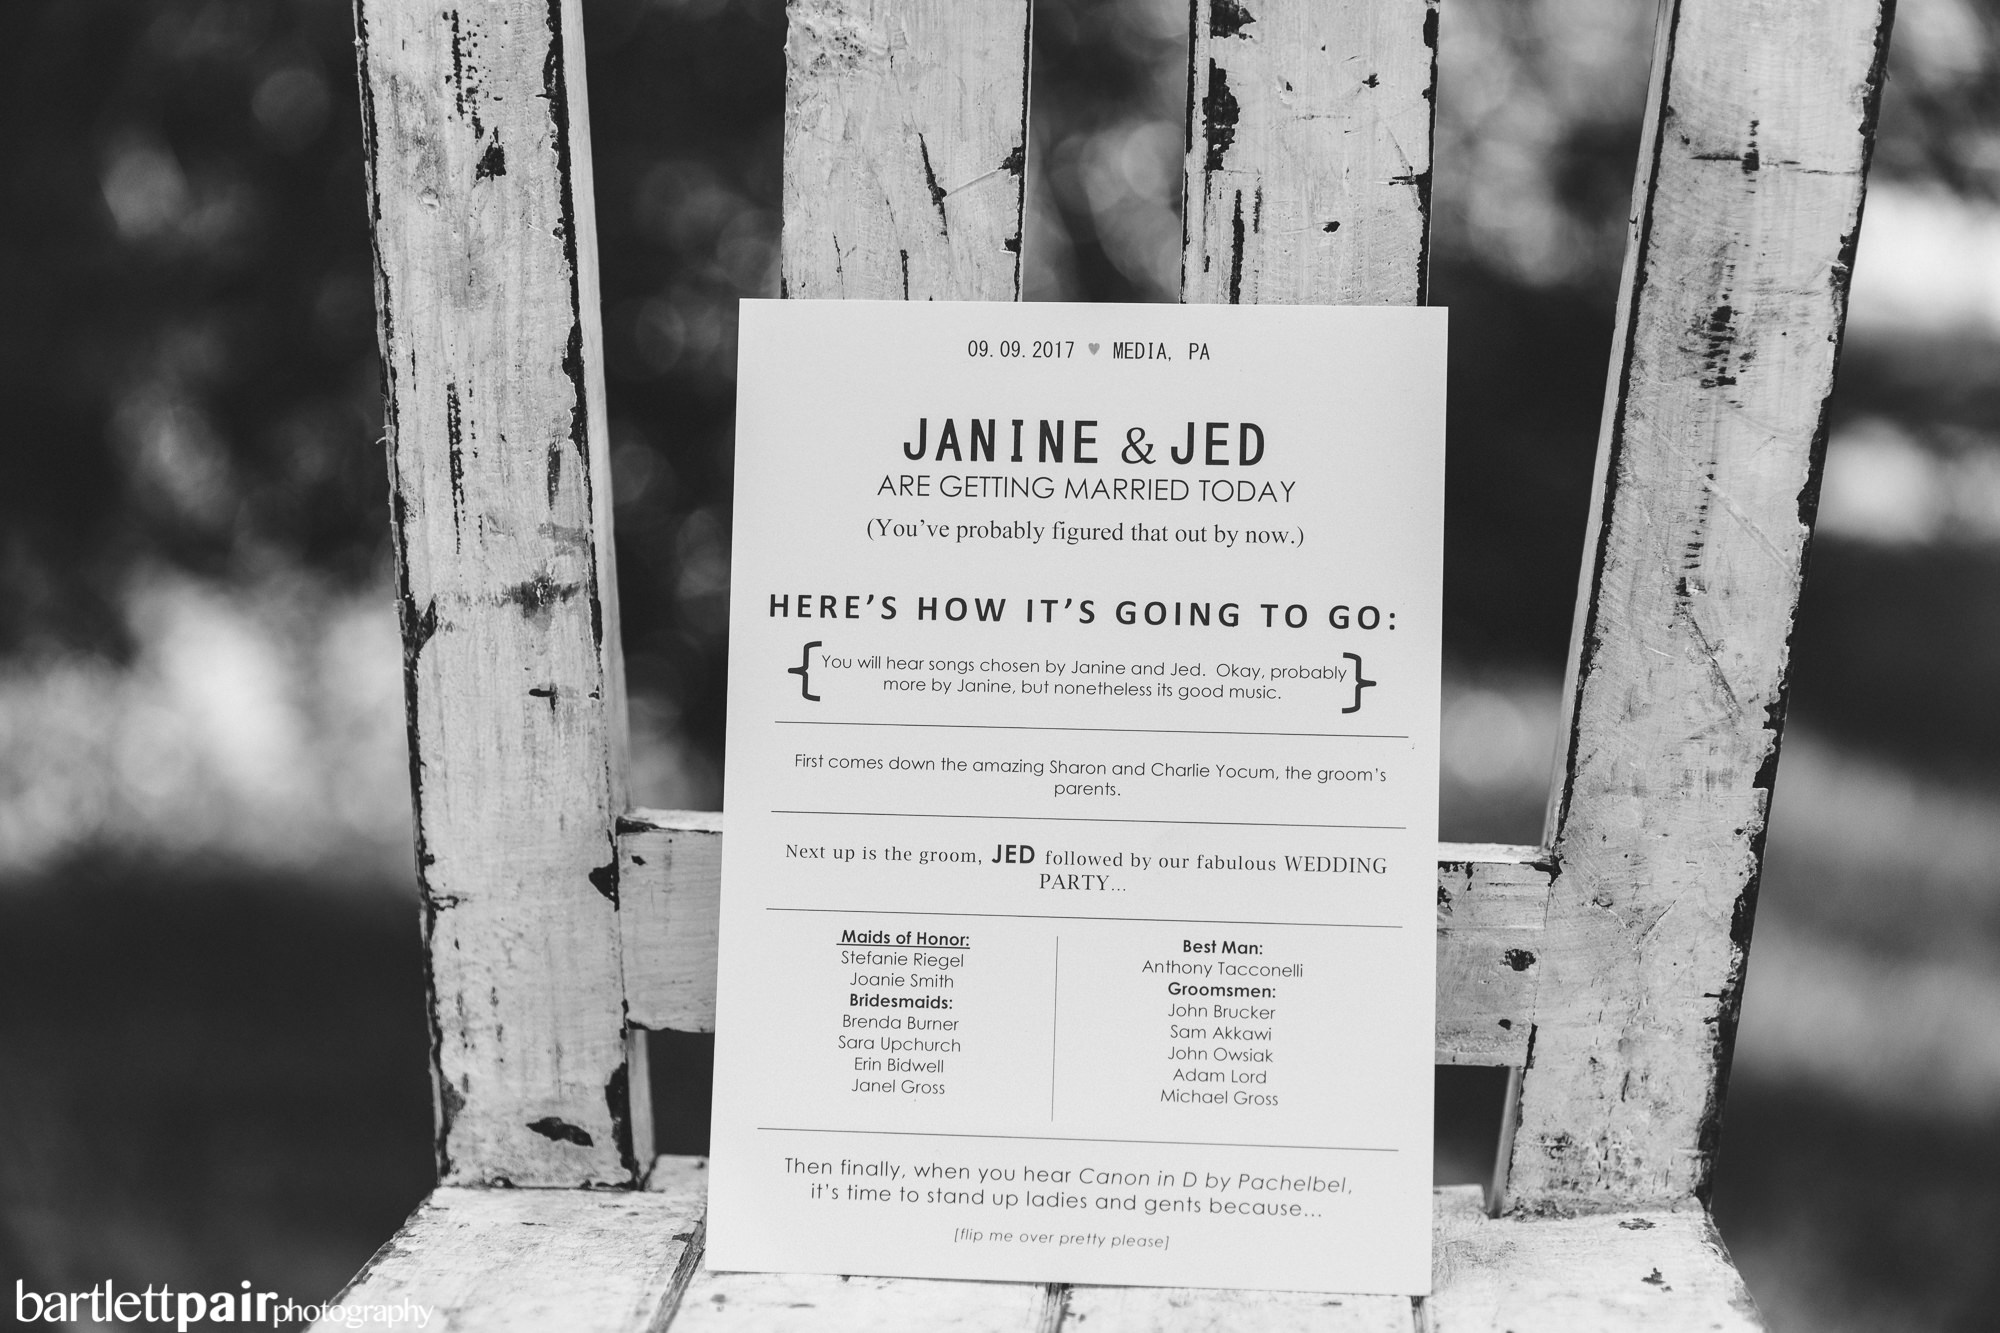 09.09.2017 ♥ MEDIA, PA
JANINE & JED
ARE GETTING MARRIED TODAY
(You've probably figured that out by now.)
HERE'S HOW IT'S GOING TO GO:
{You will hear songs chosen by Janine and Jed. Okay, probably
more by Janine, but nonetheless its good music.}
First comes down the amazing Sharon and Charlie Yocum, the groom's
parents.
Next up is the groom, JED followed by our fabulous WEDDING
PARTY...
Maids of Honor:
Stefanie Riegel
Joanie Smith
Bridesmaids:
Brenda Burner
Sara Upchurch
Erin Bidwell
Janel Gross
Best Man:
Anthony Tacconelli
Groomsmen:
John Brucker
Sam Akkawi
John Owsiak
Adam Lord
Michael Gross
Then finally, when you hear Canon in D by Pachelbel,
it's time to stand up ladies and gents because...
[flip me over pretty please]
bartlettpairphotography